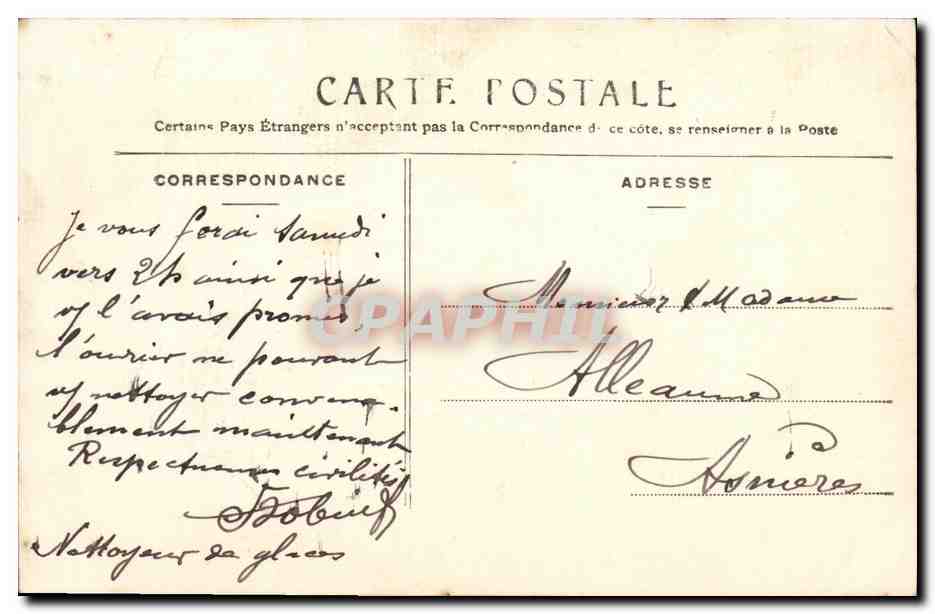 CARTE POSTALE
Certains Pays Étrangers n'acceptant pas la Correspondance de ce côte, se renseigner à la Poste
CORRESPONDANCE
Je vous ferai Samedi
vers 2h ainsi que je
vs l'avais promis,
l'ouvrier ne pouvant
vs nettoyer convena-
blement maintenant
Respectueuses civilités
Nettoyeur de glaces
ADRESSE
Monsieur & Madame
Alleaume
Asnières
CPAPHIL